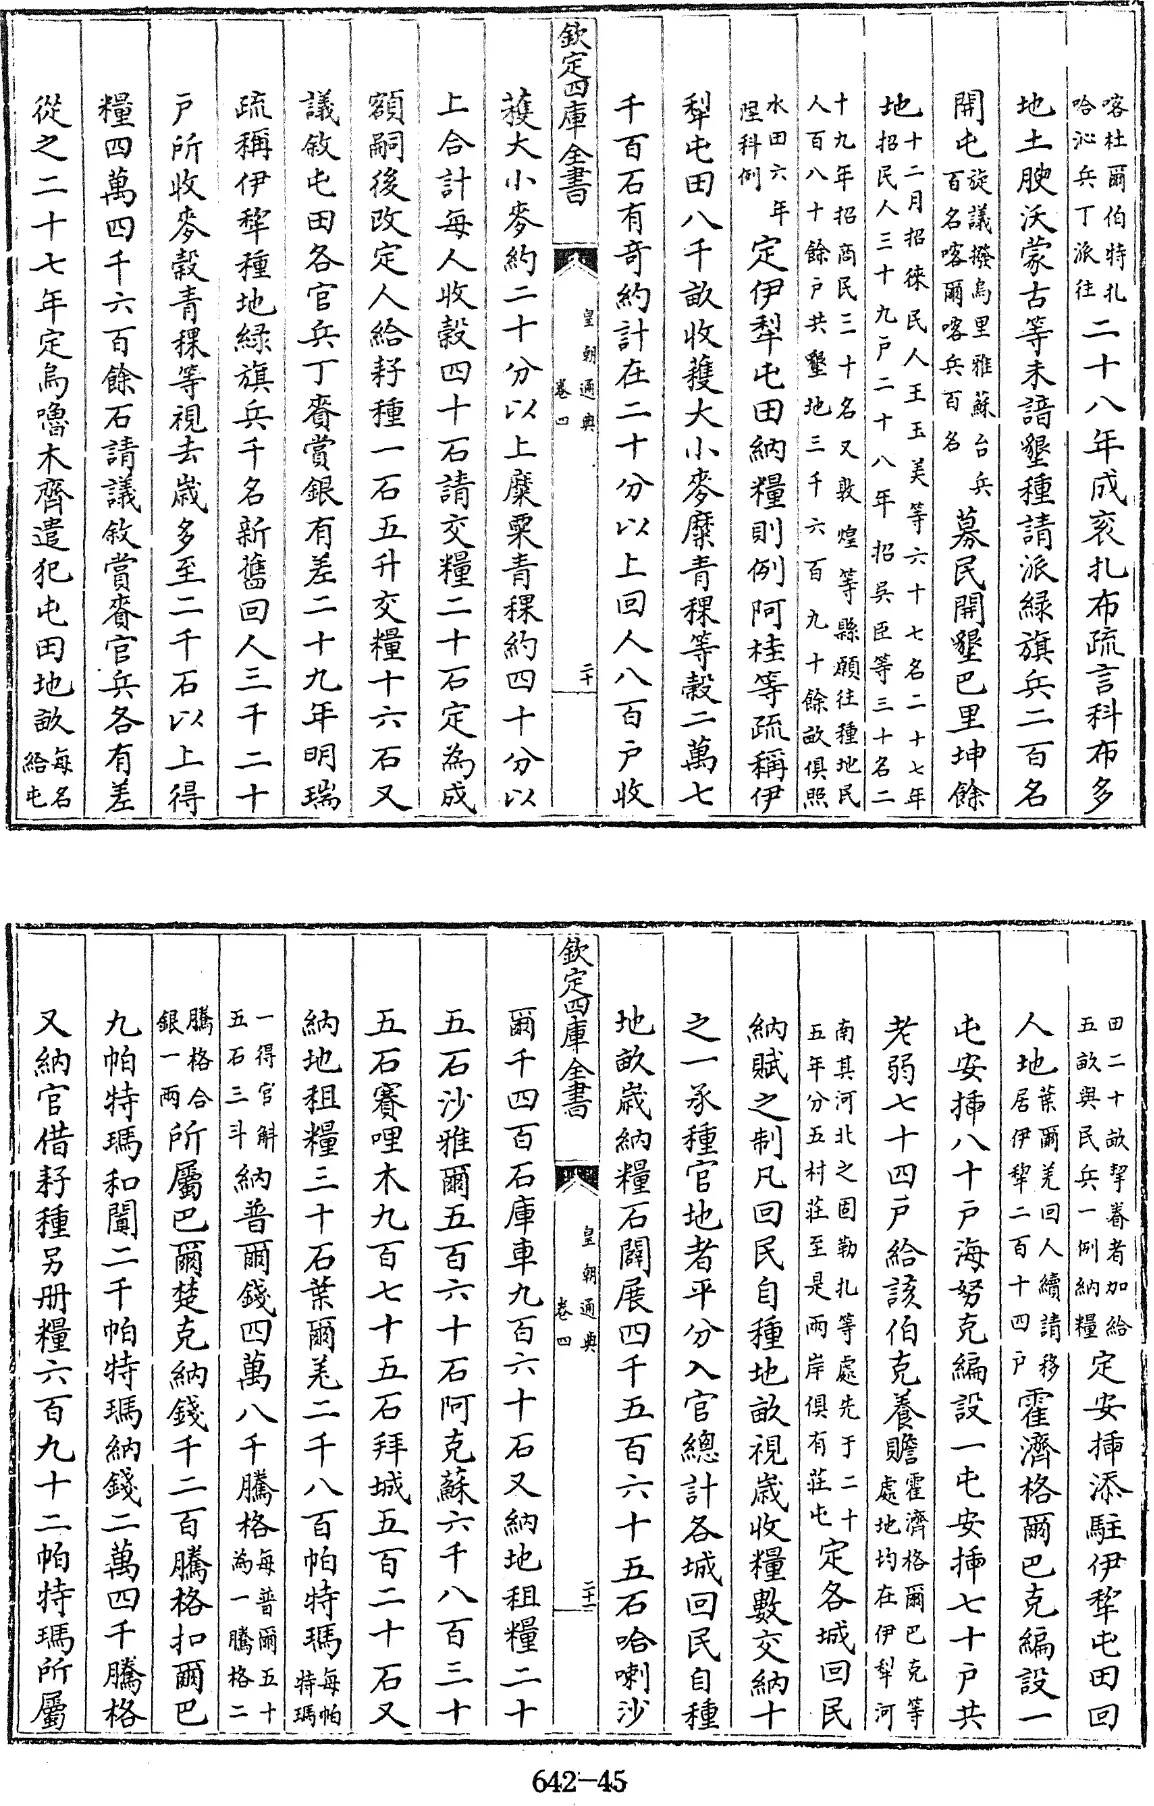 喀杜爾伯特扎
哈沁兵丁派往
二十八年成衮扎布疏言科布多
地土腴沃蒙古等未諳墾種請派緑旗兵二百名
開屯
旋議撥烏里雅蘇台兵
百名喀爾喀兵百名
募民開墾巴里坤餘
地
十二月招徠民人王玉美等六十七名二十七年
招民人三十九戸二十八年招吳臣等三十名二
十九年招商民三十名又敦煌等縣願往種地民
人百八十餘戸共墾地三千六百九十餘畝俱照
水田六年
陞科例
定伊犁屯田納糧則例阿桂等疏稱伊
犁屯田八千畝收穫大小麥糜青稞等穀二萬七
千百石有奇約計在二十分以上回人八百戸收
欽定四庫全書
皇朝通典
卷四
二十
穫大小麥約二十分以上糜粟青稞約四十分以
上合計每人收穀四十石請交糧二十石定為成
額嗣後改定人給耔種一石五升交糧十六石又
議敘屯田各官兵丁賚賞銀有差二十九年明瑞
疏稱伊犂種地緑旗兵千名新舊回人三千二十
戸所收麥穀青稞等視去歲多至二千石以上得
糧四萬四千六百餘石請議敘賞賚官兵各有差
從之二十七年定烏嚕木齊遣犯屯田地畝
每名
給屯
田二十畝挈眷者加給
五畝與民兵一例納糧
定安揷添駐伊犂屯田回
人地
葉爾羌回人續請移
居伊犂二百十四戸
霍濟格爾巴克編設一
屯安揷八十戸海努克編設一屯安揷七十戸共
老弱七十四戸給該伯克養贍
霍濟格爾巴克等
處地均在伊犁河
南其河北之固勒扎等處先于二十
五年分五村莊至是兩岸俱有莊屯
定各城回民
納賦之制凡回民自種地畝視歲收糧數交納十
之一承種官地者平分入官總計各城回民自種
地畝歲納糧石闢展四千五百六十五石哈喇沙
欽定四庫全書
皇朝通典
卷四
二十一
爾千四百石庫車九百六十石又納地租糧二十
五石沙雅爾五百六十石阿克蘇六千八百三十
五石賽哩木九百七十五石拜城五百二十石又
納地租糧三十石葉爾羌二千八百帕特瑪
每帕
特瑪
一得官斛
五石三斗
納普爾錢四萬八千騰格
每普爾五十
為一騰格二
騰格合
銀一兩
所屬巴爾楚克納錢千二百騰格扣爾巴
九帕特瑪和闐二千帕特瑪納錢二萬四千騰格
又納官借耔種另册糧六百九十二帕特瑪所屬
642-45